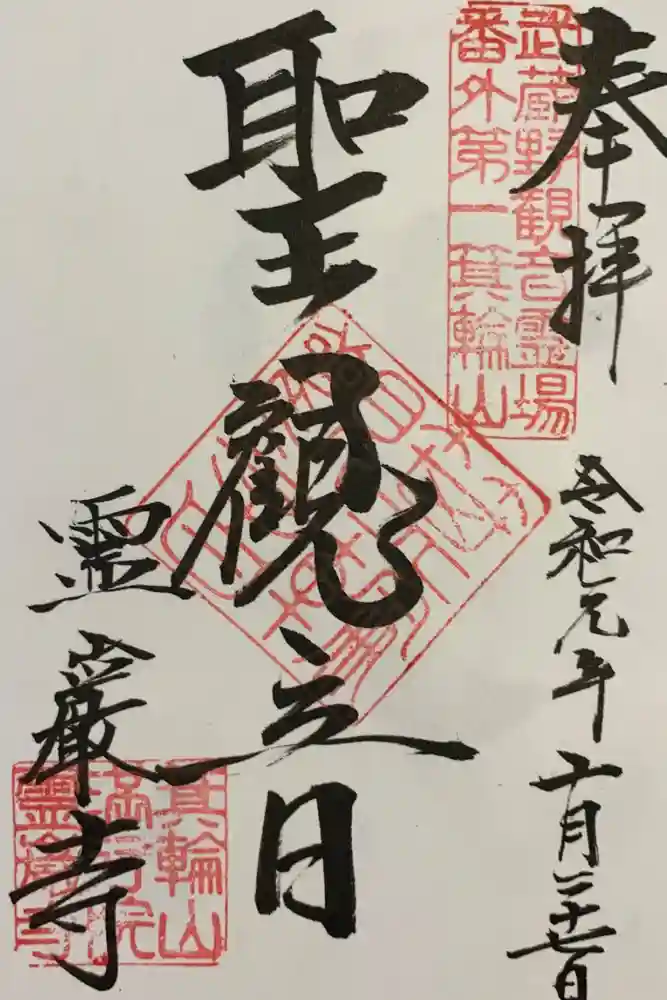 奉拝
令和元年十月二十七日
武蔵野観音霊場
番外第一箕輪山
聖観音
霊巌寺
箕輪山
満行院
霊巌寺